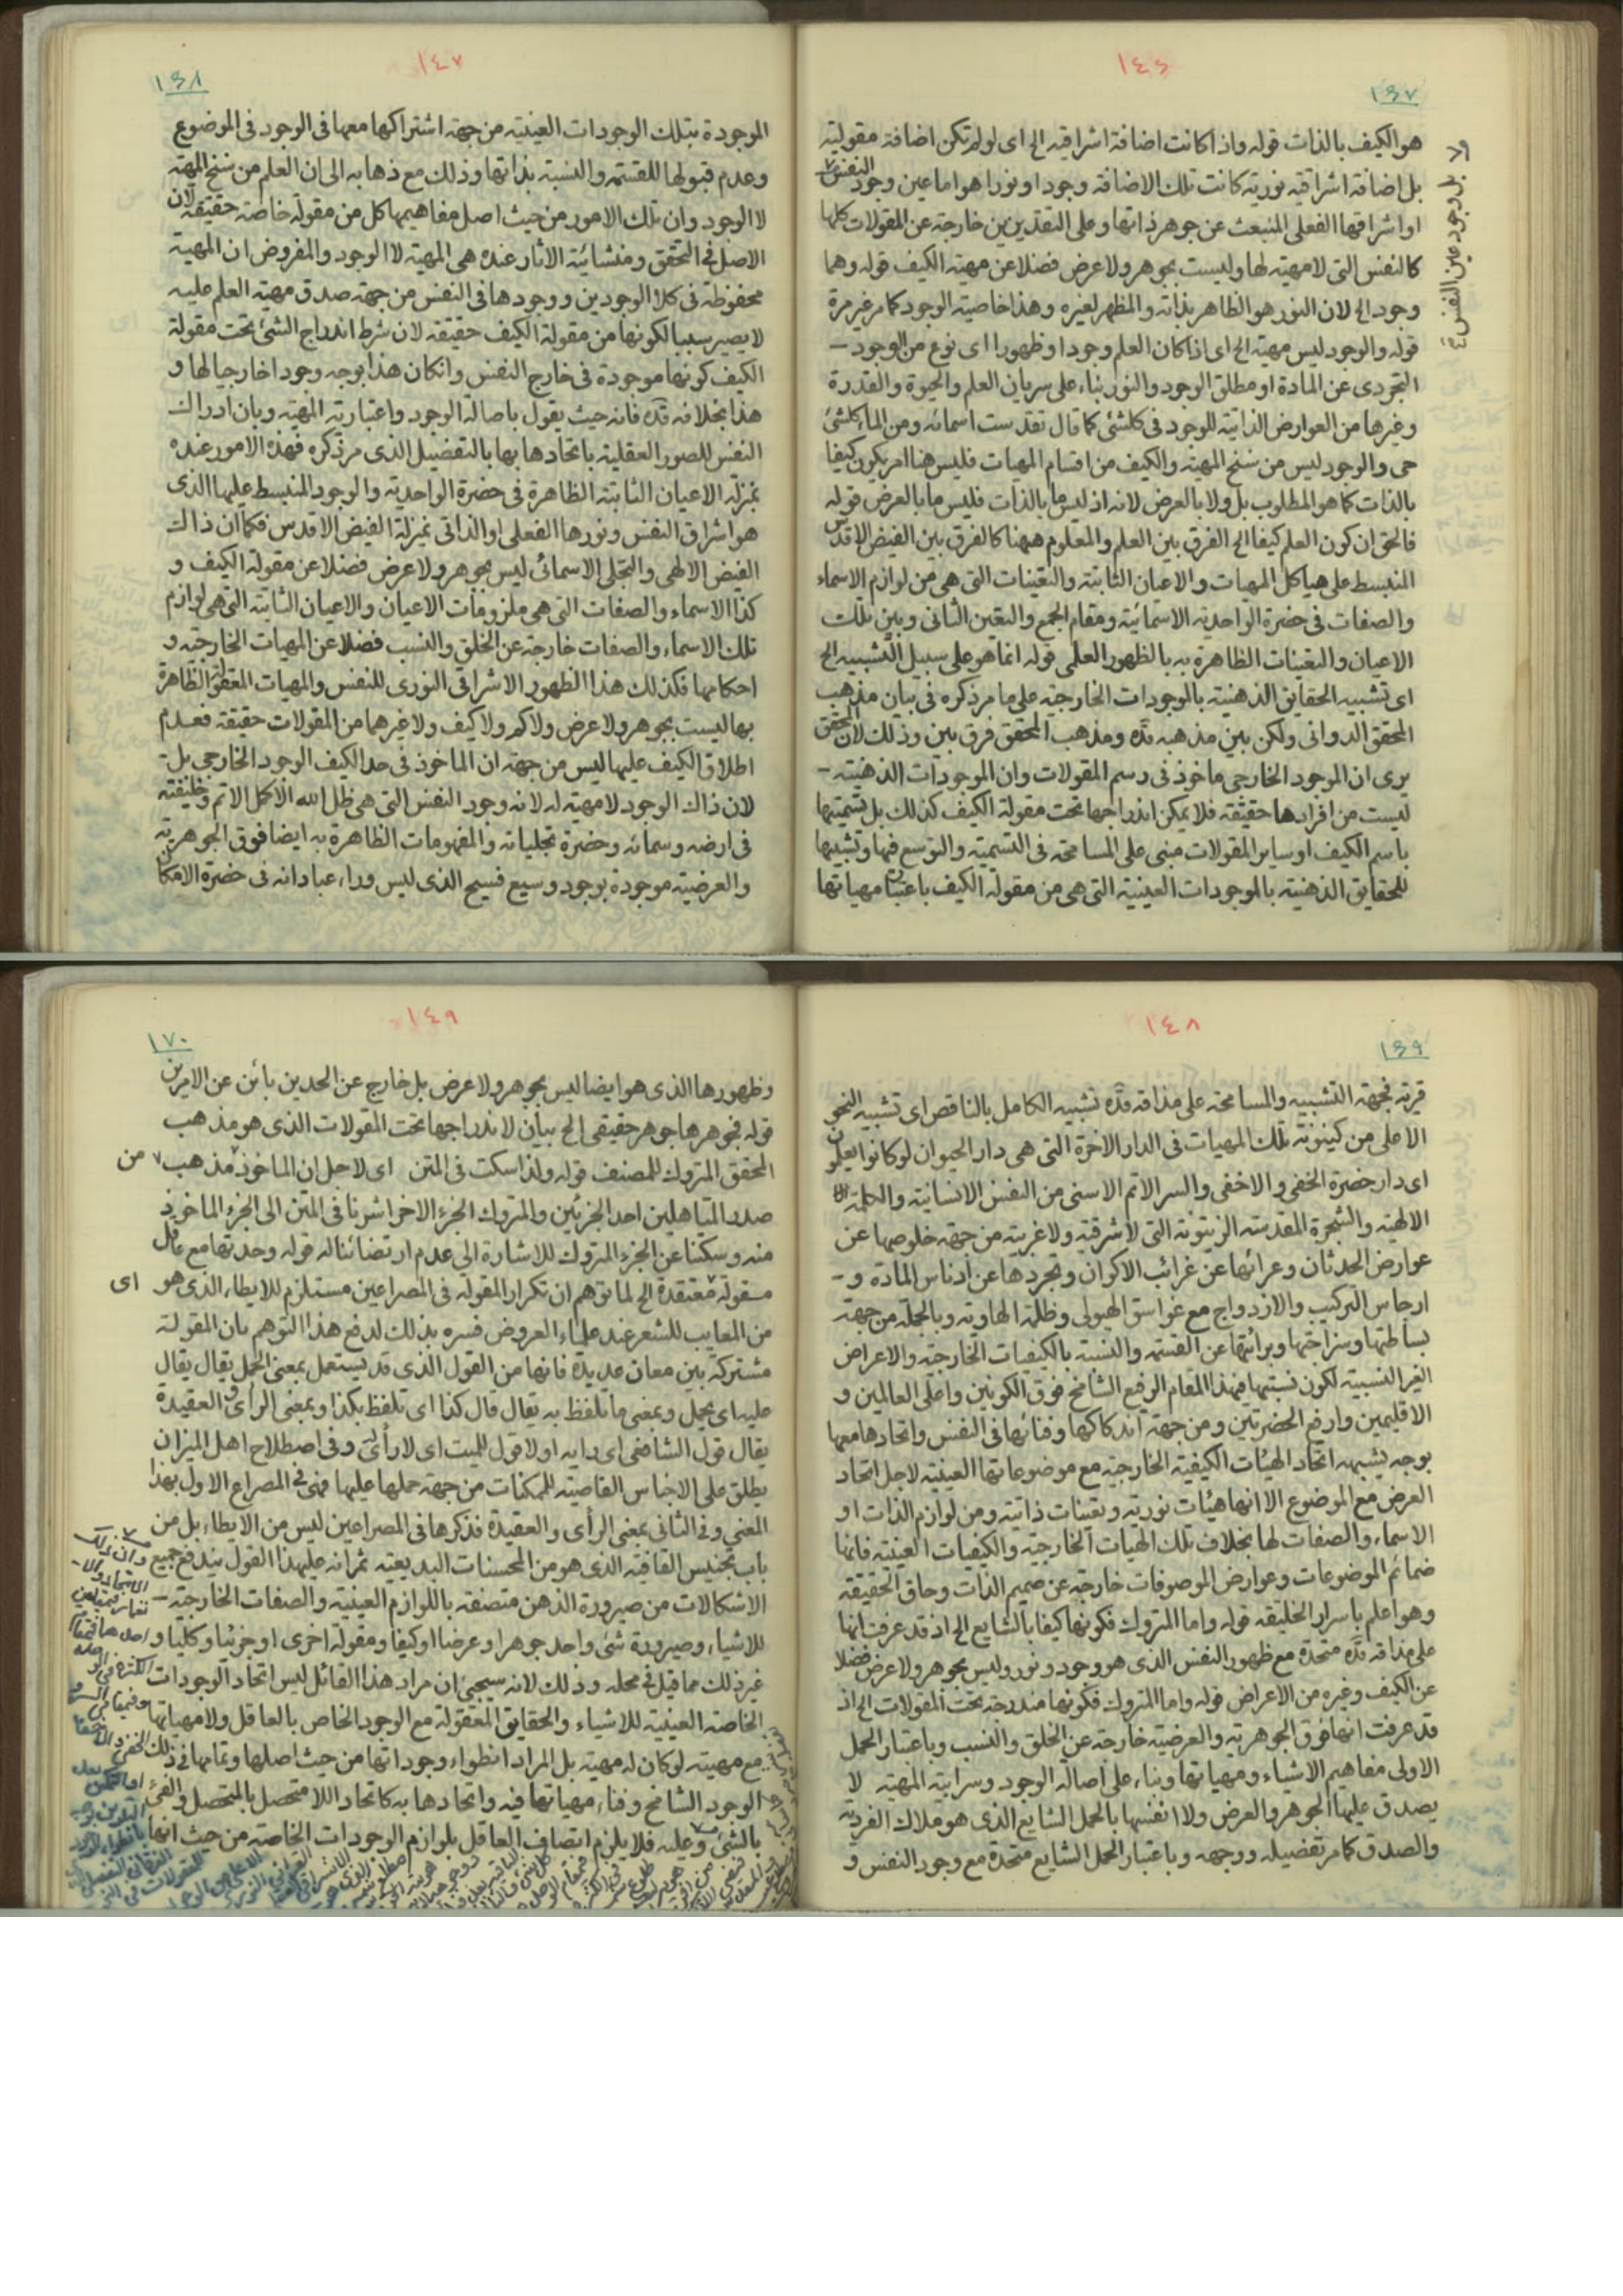 ١٤٦
١٦٧
هو الكيف بالذات قوله واذا كانت اضافة اشراقيه الخ اى لو لم تكن اضافة مقولية
بل اضافة اشراقية نورية كانت تلك الاضافة وجودا ونورا هو اما عين وجود النفس
او اشراقها الفعلى المنبعث عن جوهر ذاتها وعلى التقديرين خارجة عن المقولات كلها
كالنفس التى لا مهية لها وليست بجوهر ولا عرض فضلا عن مهية الكيف قوله وهما
وجود الخ لان النور هو الظاهر بذاته والمظهر لغيره وهذا خاصية الوجود كما مر غير مرة
قوله والوجود ليس مهية الخ اى اذا كان العلم وجودا وظهورا اى نوع من الوجود –
التجردى عن المادة او مطلق الوجود والنور بناء على سريان العلم والحيوة والقدرة
وغيرها من العوارض الذاتية للوجود فى كلشئ كما قال تقدست اسمائه ومن الماء كلشئ
حى والوجود ليس من سنخ المهية والكيف من اقسام المهيات فليس هنا امر يكون كيفا
بالذات كما هو المطلوب بل ولا بالعرض لانه اذ ليس ما بالذات فليس ما بالعرض قوله
فالحق ان كون العلم كيفا الخ الفرق بين العلم والمعلوم ههنا كالفرق بين الفيض الاقدس
المنبسط على هياكل المهيات والاعيان الثابتة والتعينات التى هى من لوازم الاسماء
والصفات فى حضرة الواحدية الاسمائية ومقام الجمع والتعين الثانى وبين تلك
الاعيان والتعينات الظاهرة به بالظهور العلمى قوله انما هو على سبيل التشبيه الخ
اى تشبيه الحقايق الذهنية بالموجودات الخارجية على ما مر ذكره فى بيان مذهب
المحقق الدوانى ولكن بين مذهبه قده ومذهب المحقق فرق بين وذلك لان المحقق
يرى ان الموجود الخارجى ماخوذ فى رسم المقولات وان الموجودات الذهنية –
ليست من افرادها حقيقة فلا يمكن اندراجها تحت مقولة الكيف كذلك بل تسميتها
باسم الكيف او ساير المقولات مبنى على المسامحة فى التسمية والتوسع فيها وتشبيها
للحقايق الذهنية بالموجودات العينية التى هى من مقولة الكيف باعتبار مهياتها
بل وجود عين النفس
١٤٧
١٦٨
الموجودة بتلك الوجودات العينية من جهة اشتراكها معها فى الوجود فى الموضوع
وعدم قبولها للقسمة والنسبة بذاتها وذلك مع ذهابه الى ان العلم من سنخ المهية
لا الوجود وان تلك الامور من حيث اصل مفاهيمها كل من مقولة خاصة حقيقة لان
الاصل فى التحقق ومنشائية الاثار عنده هى المهية لا الوجود والمفروض ان المهية
محفوظة فى كلا الوجودين ووجودها فى النفس من جهة صدق مهية العلم عليه
لا يصير سببا لكونها من مقولة الكيف حقيقة لان شرط اندراج الشئ تحت مقولة
الكيف كونها موجودة فى خارج النفس وان كان هذا بوجه وجودا خارجيا لها و
هذا بخلافه قده فانه حيث يقول باصالة الوجود واعتبارية المهية وبان ادراك
النفس للصور العقلية باتحادها بها بالتفضيل الذى مر ذكره فهذه الامور عنده
بمنزلة الاعيان الثابتة الظاهرة فى حضرة الواحدية والوجود المنبسط عليها الذى
هو اشراق النفس ونورها الفعلى او الذاتى بمنزلة الفيض الاقدس فكما ان ذاك
الفيض الالهى والتجلى الاسمائى ليس بجوهر ولا عرض فضلا عن مقولة الكيف و
كذا الاسماء والصفات التى هى ملزومات الاعيان والاعيان الثابتة التى هى لوازم
تلك الاسماء والصفات خارجة عن الخلق والنسب فضلا عن المهيات الخارجية و
احكامها فكذلك هذا الظهور الاشراقى النورى للنفس والمهيات المعقولة الظاهرة
بها ليست بجوهر ولا عرض ولا كم ولا كيف ولا غيرهما من المقولات حقيقة فعدم
اطلاق الكيف عليها ليس من جهة ان الماخوذ فى حد الكيف الوجود الخارجى بل –
لان ذاك الوجود لا مهية له لانه وجود النفس التى هى ظل الله الاكمل الاتم وخليفته
فى ارضه وسمائه وحضرة تجلياته والمفهومات الظاهرة به ايضا فوق الجوهرية
والعرضية موجودة بوجود وسيع فسيح الذى ليس وراء عبادانه فى حضرة الامكان
١٤٨
١٦٩
قرية فجهة التشبيه والمسامحة على مذاقه قده تشبيه الكامل بالناقص اى تشبيه النحو
الاعلى من كينونة تلك المهيات فى الدار الاخرة التى هى دار الحيوان لو كانوا يعلمون
اى دار حضرة الخفى والاخفى والسر الاتم الاسنى من النفس الانسانية والكلمة
الالهية والشجرة المقدسة الزيتونة التى لا شرقية ولا غربية من جهة خلوصها عن
عوارض الحدثان وعرائها عن غرائب الاكوان وتجردها عن ادناس المادة و –
ارجاس التركيب والازدواج مع غواسق الهيولى وظلمة الهاوية وبالجملة من جهة
بساطتها وسزاجتها وبرائتها عن القسمة والنسبة بالكيفيات الخارجية والاعراض
الغير النسبية لكون نسبتها فهذا المقام الرفيع الشامخ فوق الكونين واعلى العالمين و
الاقليمين وارفع الحضرتين ومن جهة اندكاكها وفنائها فى النفس واتحادها معها
بوجه يشبهه اتحاد الهيئات الكيفية الخارجية مع موضوعاتها العينية لاجل اتحاد
العرض مع الموضوع الا انها هيئات نورية وتعينات ذاتية ومن لوازم الذات او
الاسماء والصفات لها بخلاف تلك الهيات الخارجية والكيفيات العينية فانها
ضمائم الموضوعات وعوارض الموصوفات خارجة عن صميم الذات وحاق الحقيقة
وهو اعلم باسرار الخليقة قوله واما المتروك فكونها كيفا بالشايع الخ اذ قد عرفت انها
على مذاقه قده متحدة مع ظهور النفس الذى هو وجود ونور وليس بجوهر ولا عرض فضلا
عن الكيف وغيره من الاعراض قوله واما المتروك فكونها مندرجة تحت المقولات الخ اذ
قد عرفت انها فوق الجوهرية والعرضية خارجة عن الخلق والنسب وباعتبار الحمل
الاولى مفاهيم الاشياء ومهياتها وبناء على اصالة الوجود وسرابية المهية لا
يصدق عليها الجوهر والعرض ولا انفسها بالحمل الشايع الذى هو ملاك الفردية
والصدق كما مر تفضيله ووجهه وباعتبار الحمل الشايع متحدة مع وجود النفس و
١٤٩
١٧٠
وظهورها الذى هو ايضا ليس بجوهر ولا عرض بل خارج عن الحدين بائن عن الامرين
قوله فجوهرها جوهر حقيقى الخ بيان لاندراجها تحت المقولات الذى هو مذهب
المحقق المتروك للمصنف قوله ولذا سكت فى المتن اى لاجل ان الماخوذ مذهب من
صدر المتاهلين احد الجزئين والمتروك الجزء الاخر اشرنا فى المتن الى الجزء الماخوذ
منه وسكتنا عن الجزء المتروك للاشارة الى عدم ارتضائنا له قوله وحدتها مع عاقل
مقولة معتقدة الخ لما توهم ان تكرار المقولة فى المصراعين مستلزم للايطاء الذى هو اى
من المعايب للشعر عند علماء العروض فسره بذلك لدفع هذا التوهم بان المقولة
مشتركة بين معان عديدة فانها من القول الذى قد يستعمل بمعنى الحمل يقال يقال
عليه اى يحمل وبمعنى ما تلفظ به يقال قال كذا اى تلفظ بكذا وبمعنى الراى والعقيدة
يقال قول الشافعى اى رايه او لا قول للميت اى لا رأى له وفى اصطلاح اهل الميزان
يطلق على الاجناس القاصية للممكنات من جهة حملها عليها فهى فى المصراع الاول بهذا
المعنى وفى الثانى بمعنى الرأى والعقيدة فذكرها فى المصراعين ليس من الايطاء بل من
باب تجنيس القافية الذى هو من المحسنات البديعية ثم انه على هذا القول يندفع جميع
الاشكالات من صيرورة الذهن متصفة باللوازم العينية والصفات الخارجية –
للاشياء وصيرورة شئ واحد جوهرا وعرضا او كيفا ومقولة اخرى او جزئيا وكليا و
غير ذلك مما قيل فى محله وذلك لانه سيجئ ان مراد هذا القائل ليس اتحاد الوجودات
الخاصة العينية للاشياء والحقايق المعقولة مع الوجود الخاص بالعاقل ولا مهياتها
مع مهيته لو كان له مهية بل المراد انطواء وجوداتها من حيث اصلها وتمامها فى ذلك
الوجود الشامخ وفناء مهياتها فيه واتحادها به كاتحاد اللا متحصل بالمتحصل والفئ
بالشئ وعليه فلا يلزم اتصاف العاقل بلوازم الوجودات الخاصة من حيث انها